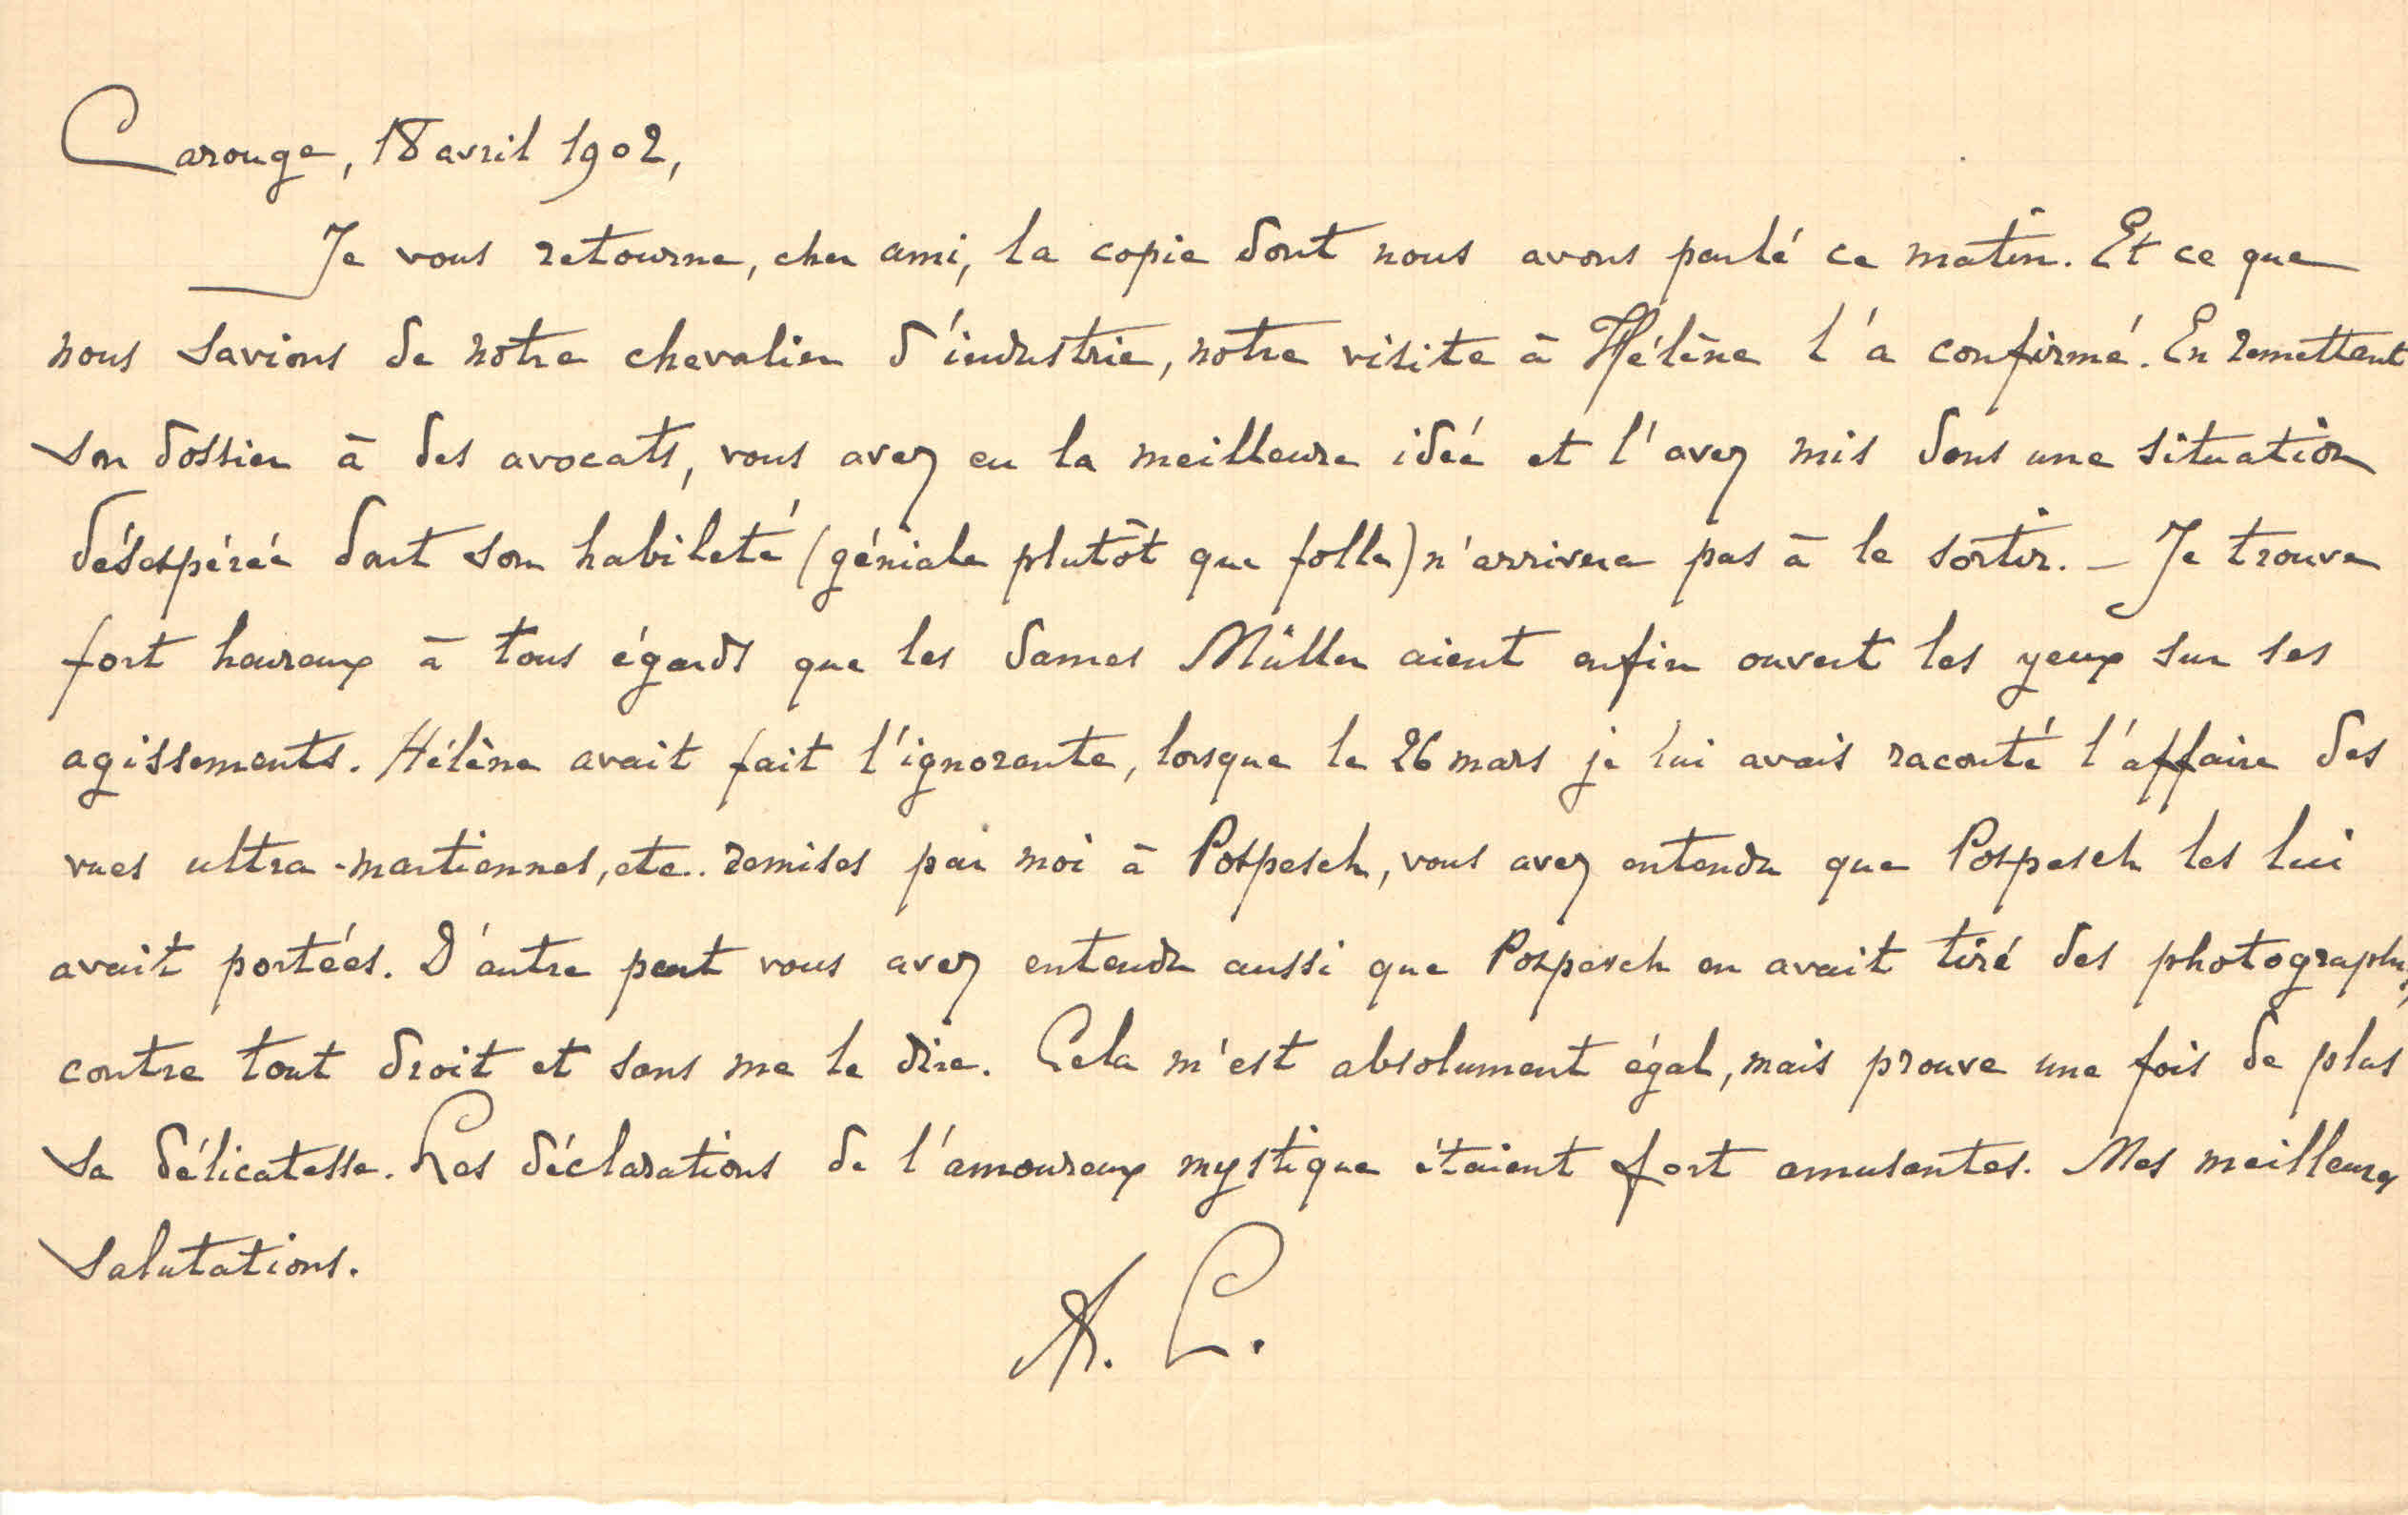 Carouge, 18 avril 1902,
Je vous retourne, cher ami, la copie dont nous avons parlé ce matin. Et ce que
nous savions de notre chevalier d'industrie, notre visite à Hélène l'a confirmé. En remettant
son dossier à des avocats, vous avez eu la meilleure idée et l'avez mis dans une situation
désespérée dont son habileté (géniale plutôt que folle) n'arrivera pas à le sortir. – Je trouve
fort heureux à tous égards que les dames Müller aient enfin ouvert les yeux sur ses
agissements. Hélène avait fait l'ignorante, lorsque le 26 mars je lui avais raconté l'affaire des
vues ultra-martiennes, etc.. remises par moi à Pospesch, vous avez entendu que Pospesch les lui
avait portées. D'autre part vous avez entendu aussi que Pospesch en avait tiré des photographies,
contre tout droit et sans me le dire. Cela m'est absolument égal, mais prouve une fois de plus
sa délicatesse. Les déclarations de l'amoureux mystique étaient fort amusantes. Mes meilleures
salutations.
A. L.